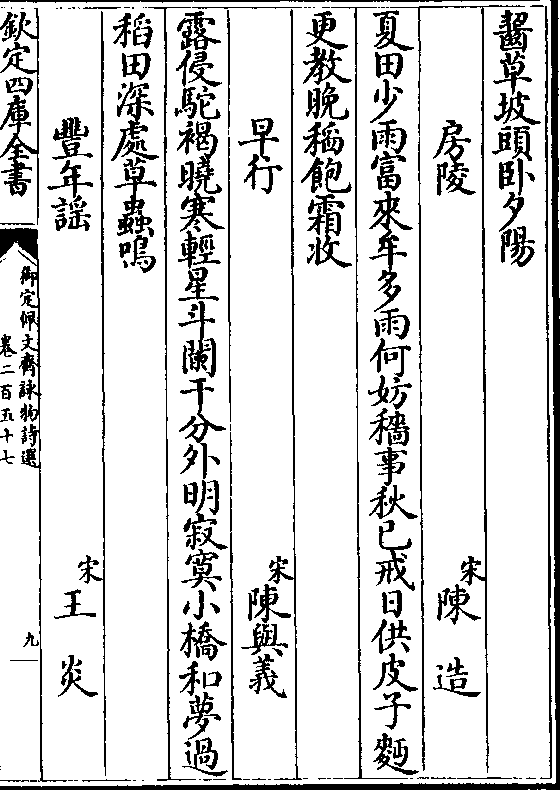 齧草坡頭卧夕陽
房陵 宋陳造
夏田少雨富來牟多雨何妨穡事秋已戒日供皮子麪
更教晚稻飽霜收
早行 宋陳與義
露侵駝褐曉寒輕星斗闌干分外明寂寞小橋和夢過
稻田深處草蟲鳴
豐年謡 宋王炎
欽定四庫全書
御定佩文齋詠物詩選
卷二百五十七
九